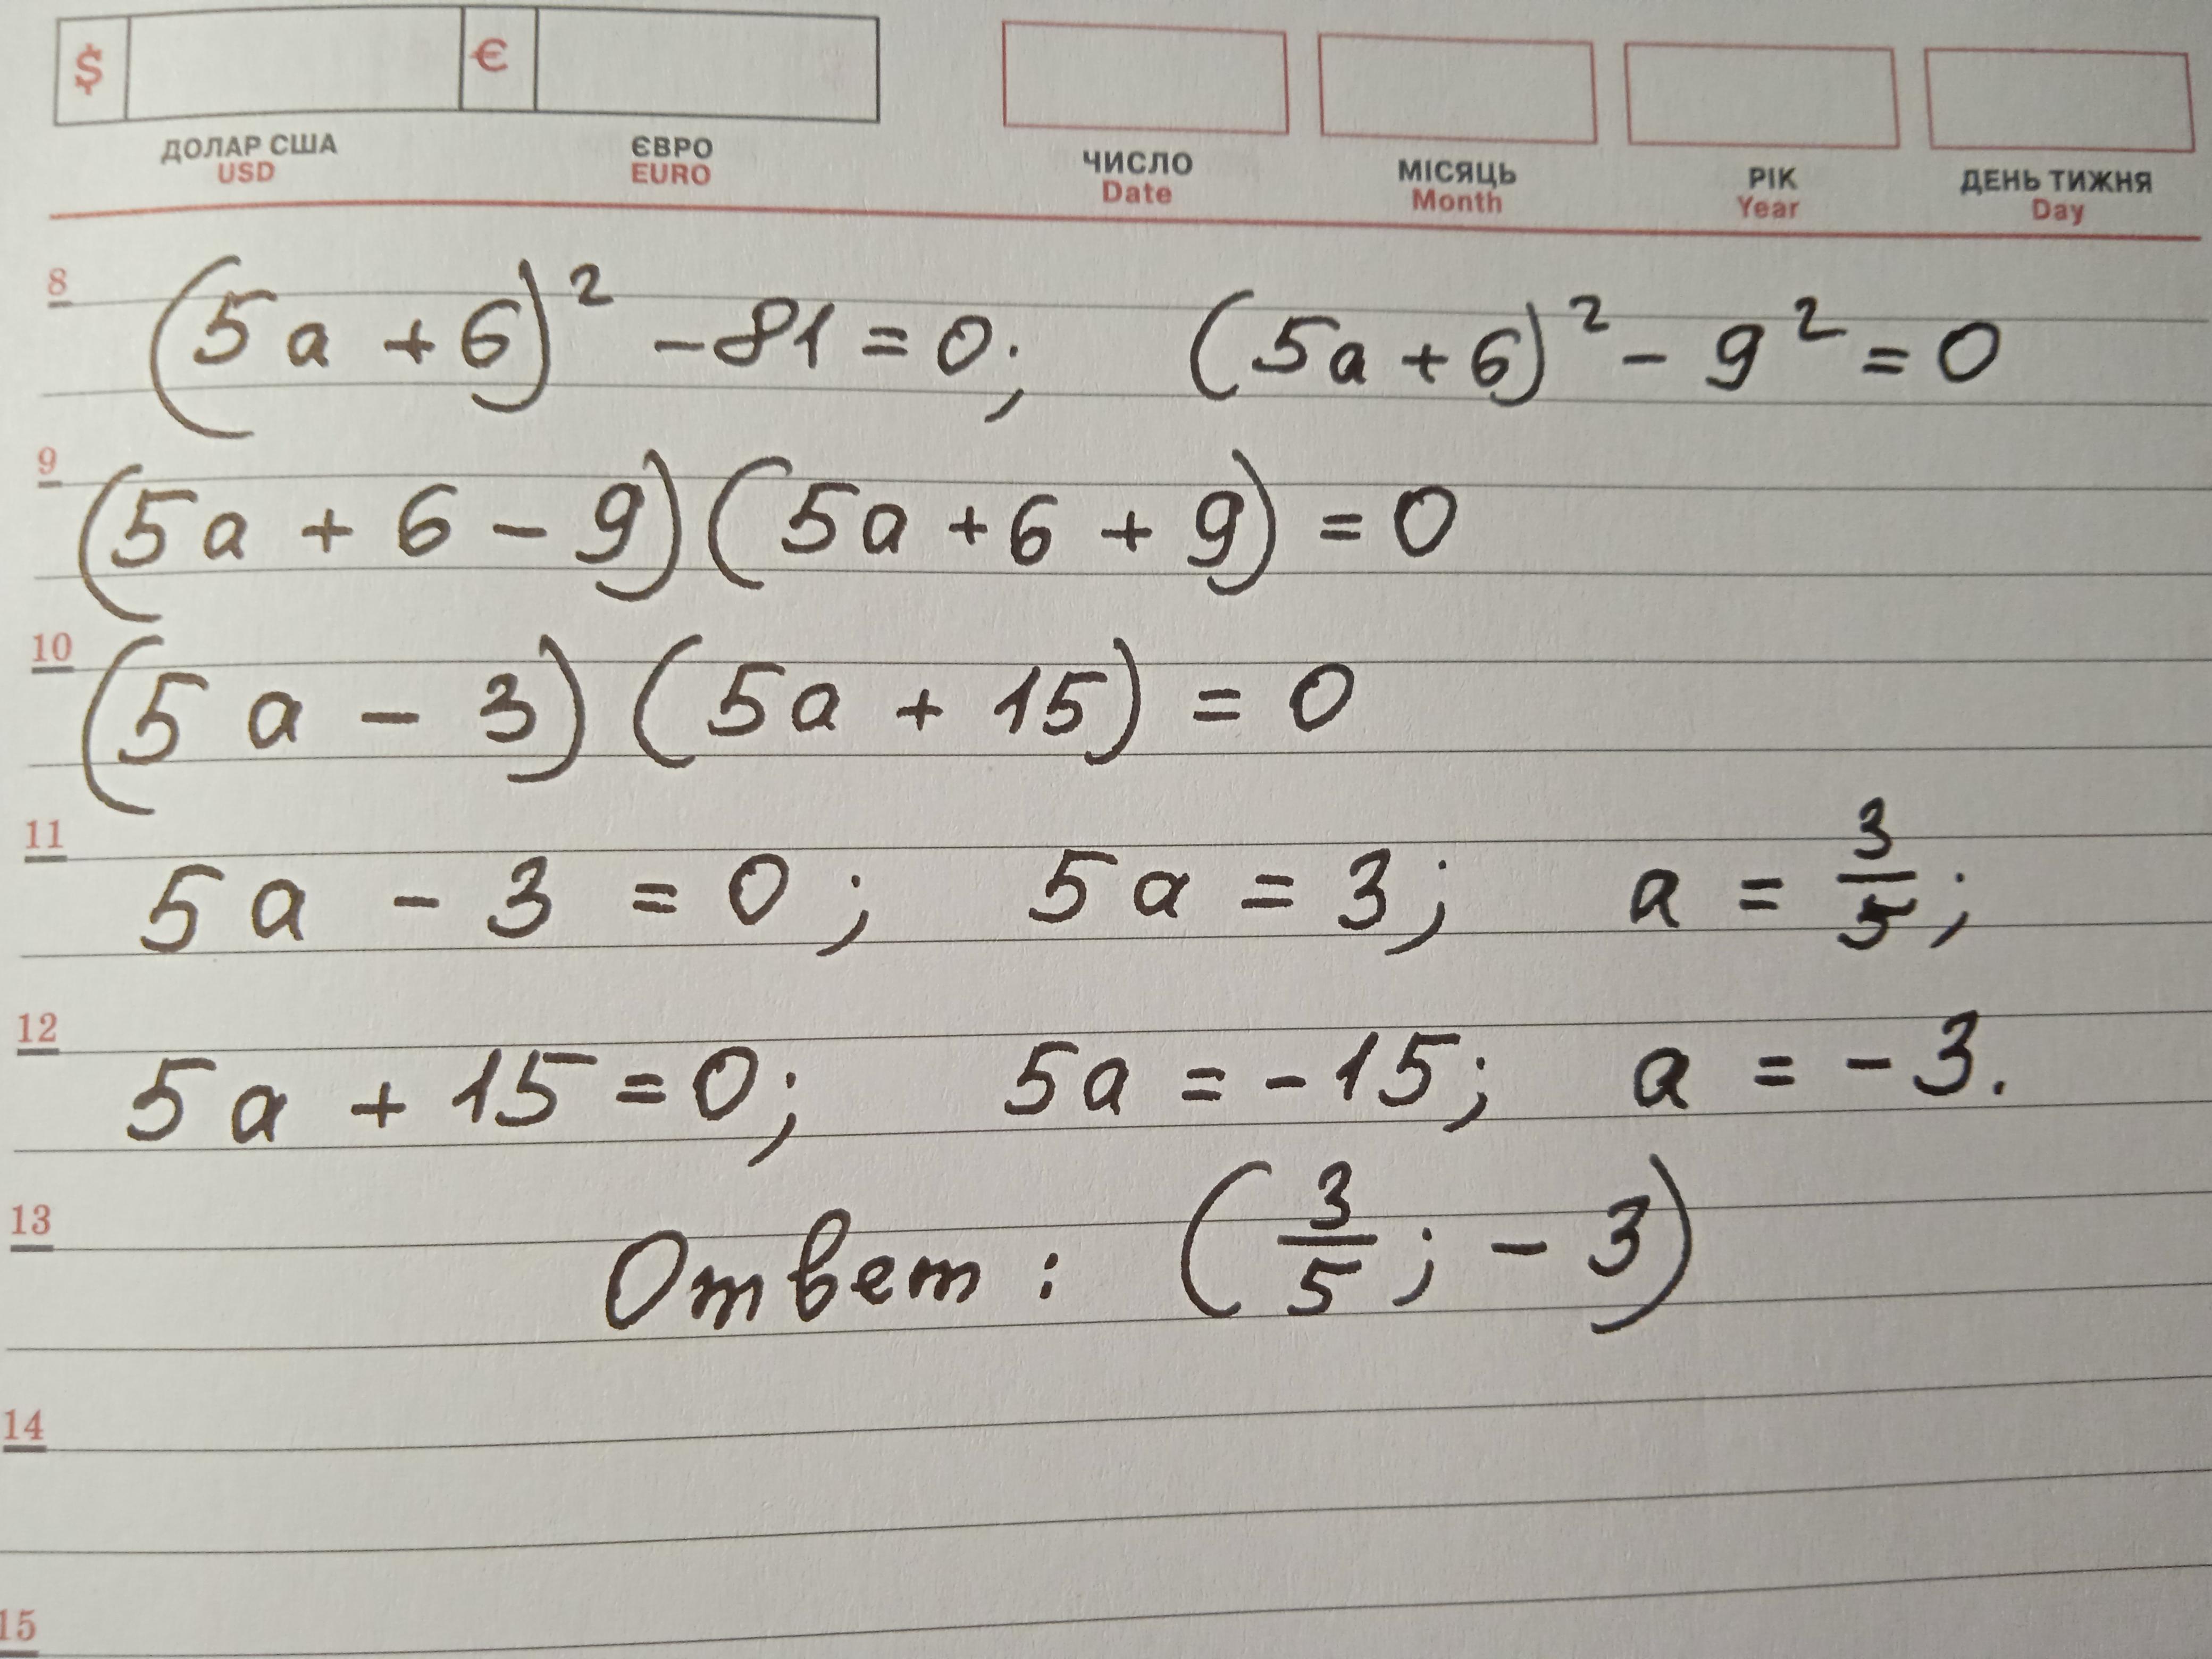 $ €
ДОЛАР США ЄВРО ЧИСЛО МІСЯЦЬ РІК ДЕНЬ ТИЖНЯ
USD EURO Date Month Year Day
8 (5a + 6)² - 81 = 0; (5a + 6)² - 9² = 0
9 (5a + 6 - 9)(5a + 6 + 9) = 0
10 (5a - 3)(5a + 15) = 0
11 5a - 3 = 0; 5a = 3; a = 3/5;
12 5a + 15 = 0; 5a = -15; a = -3.
13 Ответ: (3/5; -3)
14
15